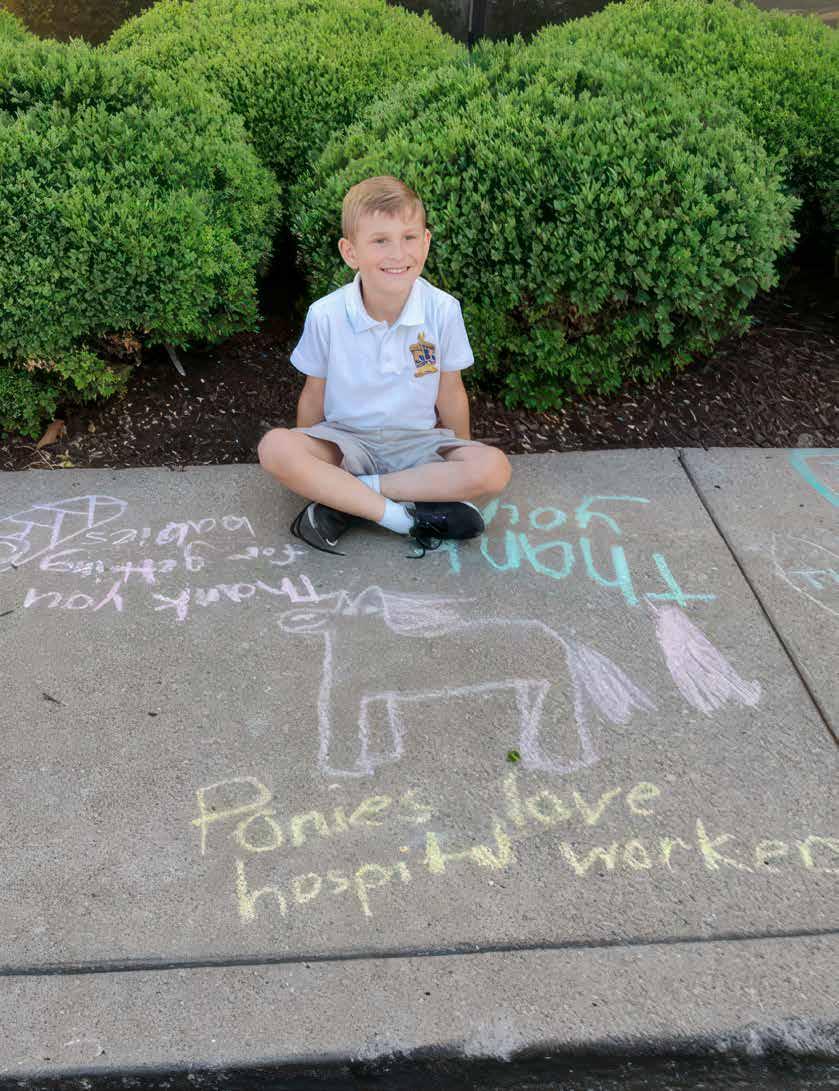 Thank
you
Thank you
for getting
babies
Ponies love
hospital worker